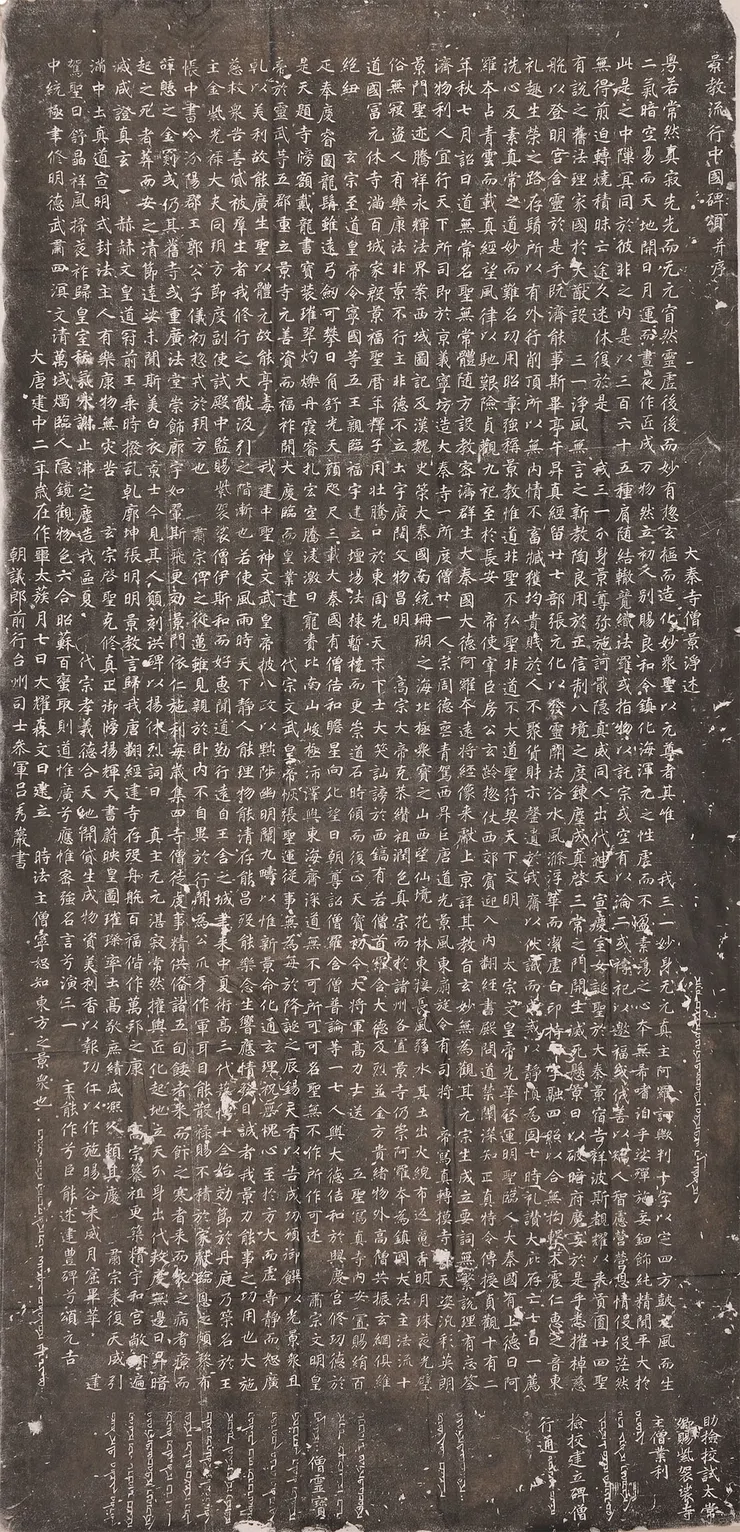 景教流行中國碑頌并序
大秦寺僧景淨述
粵若常然真寂先先而无元窅然靈虛後後而妙有惣玄樞而造化妙眾聖以元尊者其唯 我三一妙身无元真主阿羅訶歟判十字以定四方鼓元風而生
二氣暗空易而天地開日月運而晝夜作匠成万物然立初人別賜良和令鎮化海渾元之性虛而不盈素蕩之心本無希嗜洎乎娑殫施妄鈿飾純精閒平大於
此是之中隟冥同於彼非之內是以三百六十五種肩隨結轍競織法羅或指物以託宗或空有以淪二或禱祀以邀福或伐善以矯人智慮營營恩情役役茫然
無得煎迫轉燒積昧亡途久迷休復於是 我三一分身景尊弥施訶戢隱真威同人出代神天宣慶室女誕聖於大秦景宿告祥波斯覩耀以來貢圓廿四聖
有說之舊法理家國於大猷設 三一淨風無言之新教陶良用於正信制八境之度鍊塵成真啟三常之門開生滅死懸景日以破暗府魔妄於是乎悉摧棹慈
航以登明宮含靈於是乎既濟能事斯畢亭午昇真經留廿七部張元化以發靈關法浴水風滌浮華而潔虛白印持十字融四照以合無拘擊木震仁惠之音東
礼趣生榮之路存鬚所以有外行削頂所以無內情不畜臧獲均貴賤於人不聚貨財示罄遺於我齋以伏識而成戒以靜慎為固七時礼讚大庇存亡七日一薦
洗心反素真常之道妙而難名功用昭彰強稱景教惟道非聖不弘聖非道不大道聖符契天下文明 太宗文皇帝光華啟運明聖臨人大秦國有上德曰阿
羅本占青雲而載真經望風律以馳艱險貞觀九祀至於長安 帝使宰臣房公玄齡惣仗西郊賓迎入內翻經書殿問道禁闈深知正真特令傳授貞觀十有二
年秋七月詔曰道無常名聖無常體隨方設教密濟群生大秦國大德阿羅本遠將經像來獻上京詳其教旨玄妙無為觀其元宗生成立要詞無繁說理有忘筌
濟物利人宜行天下所司即於京義寧坊造大秦寺一所度僧廿一人宗周德喪青駕西昇巨唐道光景風東扇旋令有司將 帝寫真轉摸寺壁天姿汎彩英朗
景門聖迹騰祥永輝法界案西域圖記及漢魏史策大秦國南統珊瑚之海北極眾寶之山西望仙境花林東接長風弱水其土出火綄布返魂香明月珠夜光璧
俗無寇盜人有樂康法非景不行主非德不立土宇廣闊文物昌明 高宗大帝克恭纘祖潤色真宗而於諸州各置景寺仍崇阿羅本為鎮國大法主法流十
道國富元休寺滿百城家殷景福聖曆年釋子用壯騰口於東周先天末下士大笑訕謗於西鎬有若僧首羅含大德及烈並金方貴緒物外高僧共振玄綱俱維
絕紐 玄宗至道皇帝令寧國等五王親臨福宇建立壇場法棟暫橈而更崇道石時傾而復正天寶初令大將軍高力士送 五聖寫真寺內安置賜絹百
疋奉慶睿圖龍髯雖遠弓劍可攀日角舒光天顏咫尺三載大秦國有僧佶和瞻星向化望日朝尊詔僧羅含僧普論等一七人與大德佶和於興慶宮修功德於
是天題寺牓額戴龍書寶裝璀翠灼爍丹霞睿扎宏空騰凌激日寵賚比南山峻極沛澤與東海齊深道無不可所可可名聖無不作所作可述 肅宗文明皇
帝於靈武等五郡重立景寺元善資而福祚開大慶臨而皇業建 代宗文武皇帝恢張聖運從事無為每於降誕之辰錫天香以告成功頒御饌以光景眾且
乹以美利故能廣生聖以體元故能亭毒 我建中聖神文武皇帝披八政以黜陟幽明闡九疇以惟新景命化通玄理祝無愧心至於方大而虛專靜而恕廣
慈救眾苦善貸被群生者我修行之大猷汲引之階漸也若使風雨時天下靜人能理物能清存能昌歿能樂念生響應情發目誠者我景力能事之功用也大施
主金紫光祿大夫同朔方節度副使試殿中監賜紫袈裟僧伊斯和而好惠聞道勤行遠自王舍之城聿來中夏術高三代藝博十全始効節於丹庭乃策名於王
帳中書令汾陽郡王郭公子儀初惣戎於朔方也 肅宗俾之從邁雖見親於臥內不自異於行間為公爪牙作軍耳目能散祿賜不積於家獻臨恩之頗黎布
辭憩之金罽或仍其舊寺或重廣法堂崇飾廊宇如翬斯飛更効景門依仁施利每歲集四寺僧徒虔事精供備諸五旬餧者來而飰之寒者來而衣之病者療而
起之死者葬而安之清節達娑未聞斯美白衣景士今見其人願刻洪碑以揚休烈詞曰 真主无元湛寂常然權輿匠化起地立天分身出代救度無邊日昇暗
滅咸證真玄 赫赫文皇道冠前王乘時撥亂乹廓坤張明明景教言歸我唐翻經建寺存歿舟航百福偕作萬邦之康 高宗纂祖更築精宇和宮敞朗遍
滿中土真道宣明式封法主人有樂康物無災苦 玄宗啟聖克修真正御牓揚輝天書蔚映皇圖璀璨率土高敬庶績咸熙人賴其慶 肅宗來復天威引
駕聖日舒晶祥風掃夜祚歸皇室祅氛永謝止沸定塵造我區夏 代宗孝義德合天地開貸生成物資美利香以報功仁以作施暘谷來威月窟畢萃 建
中統極聿修明德武肅四溟文清萬域燭臨人隱鏡觀物色六合昭蘇百蠻取則道惟廣兮應惟密強名言兮演三一 主能作兮臣能述建豐碑兮頌元吉
大唐建中二年歲在作噩太蔟月七日大耀森文日建立 時法主僧寧恕知東方之景眾也
朝議郎前行台州司士參軍呂秀巖書
助撿挍試太常
卿賜紫袈裟寺
主僧業利
撿挍建立碑僧
行通
僧靈寶